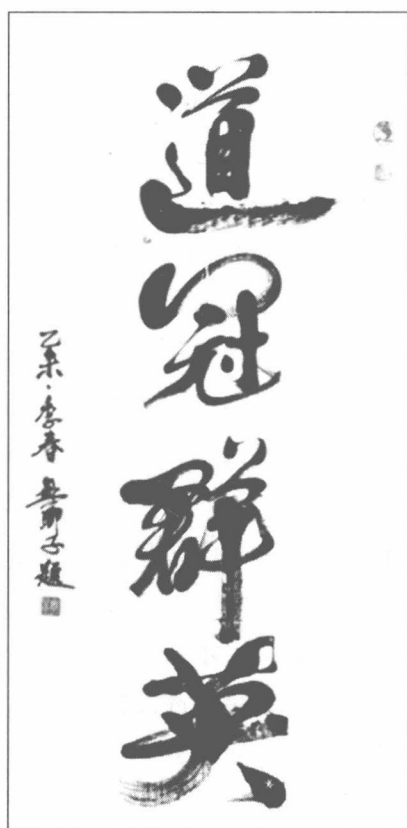 道冠群英
乙未·季春 子题